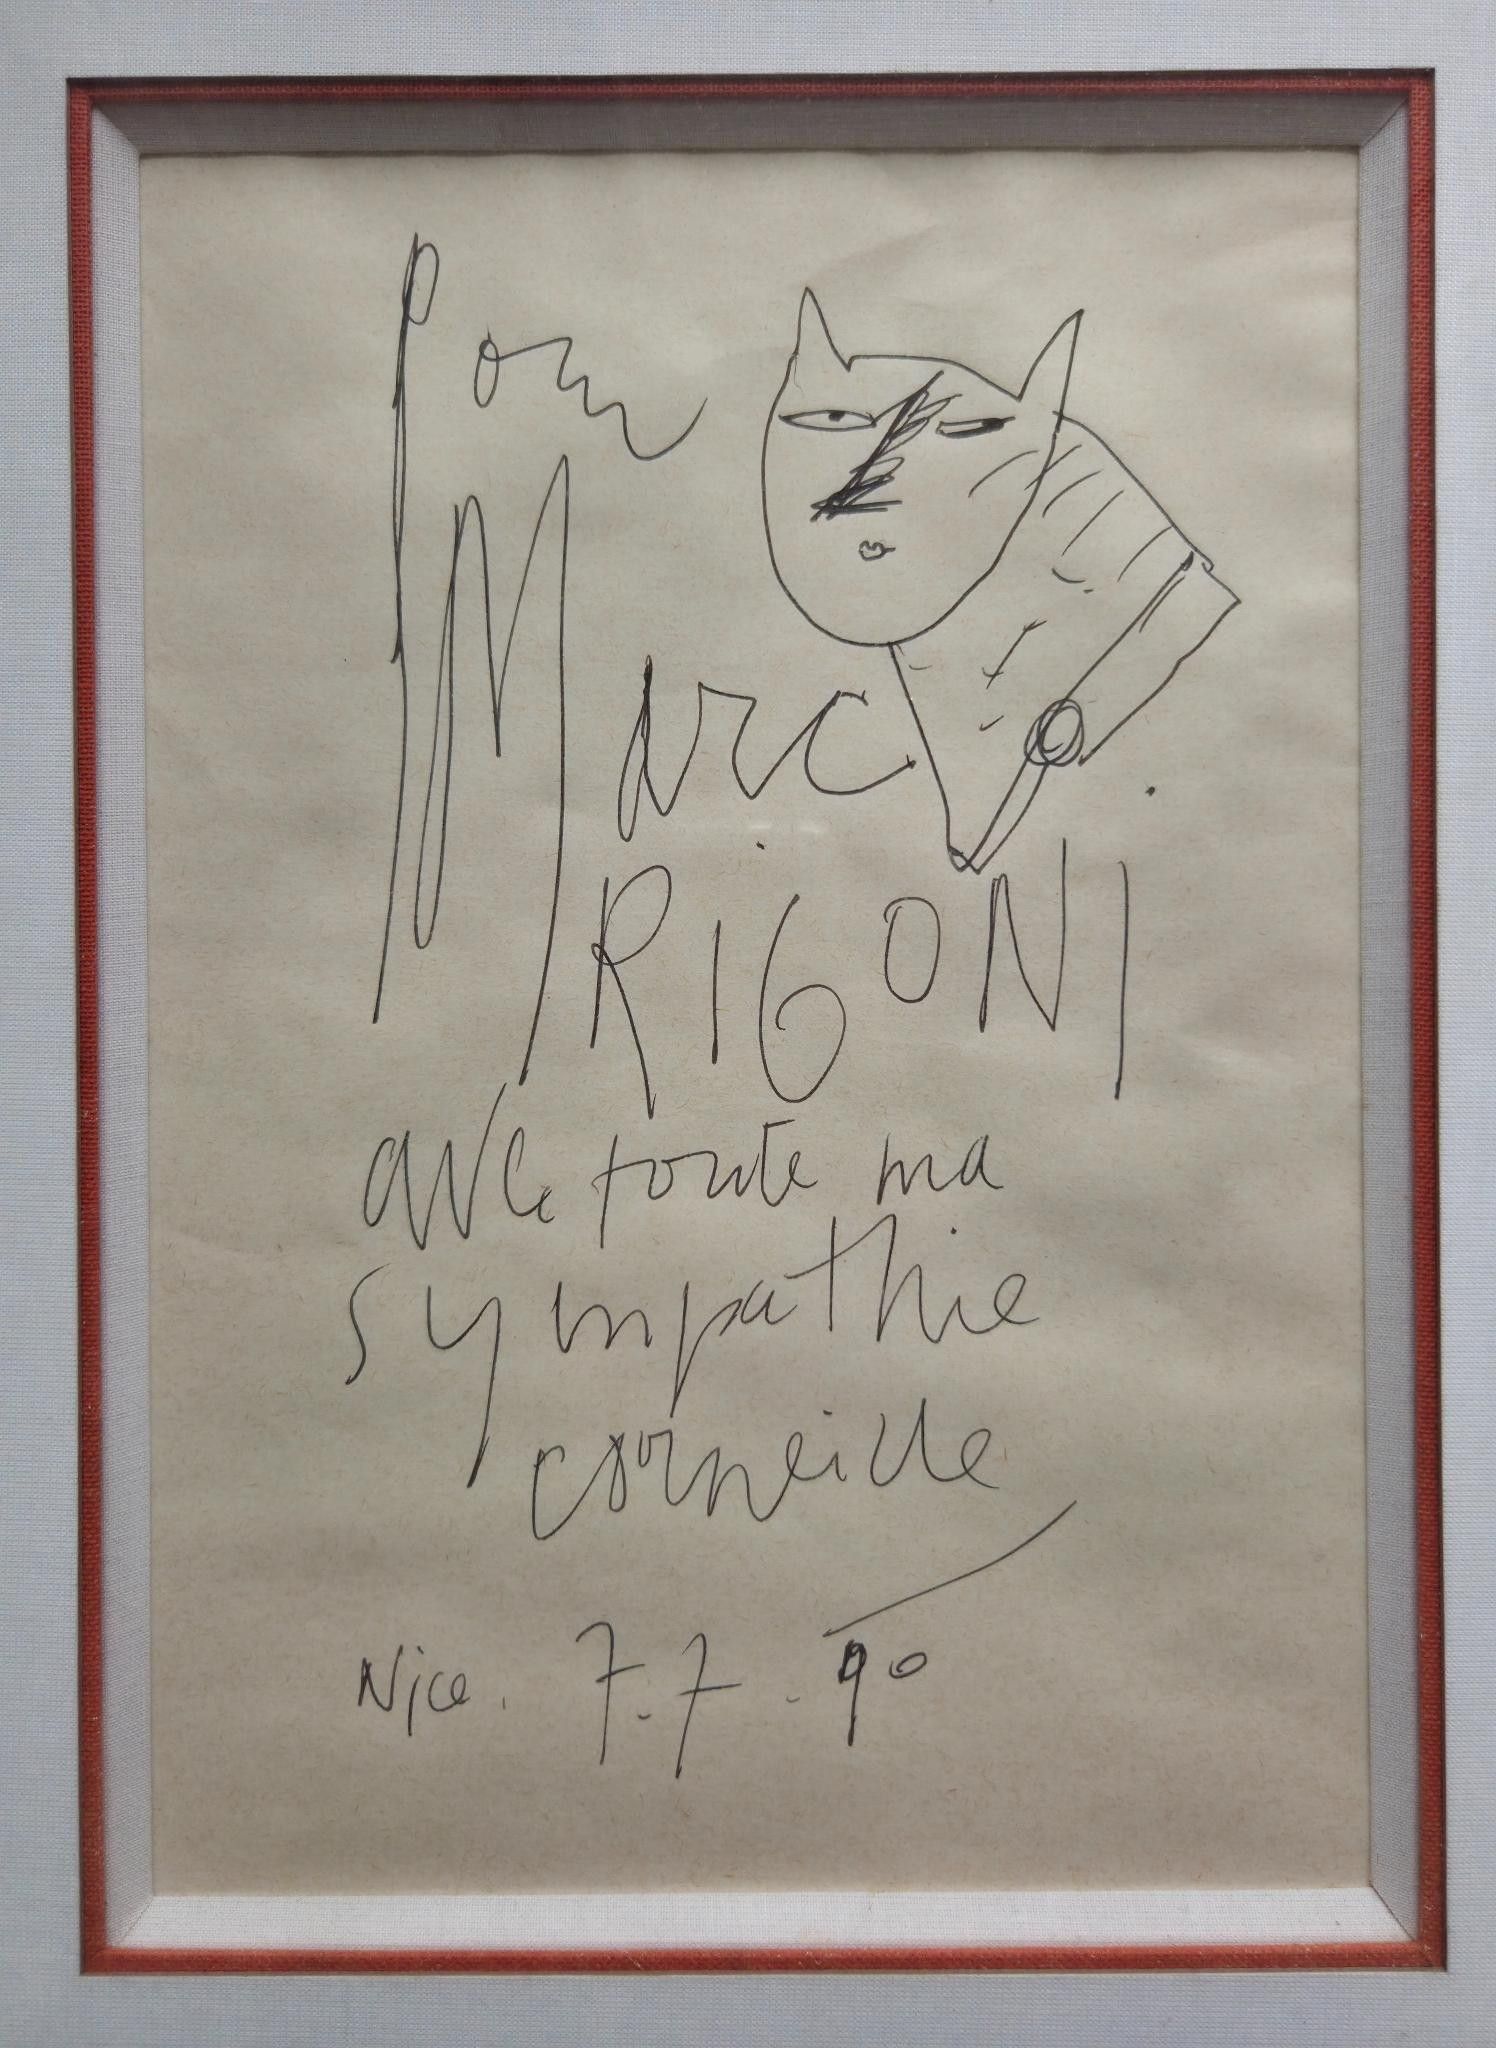 Pour
Marc
RIGONI
avec toute ma
sympathie
corneille
Nice. 7.7.90